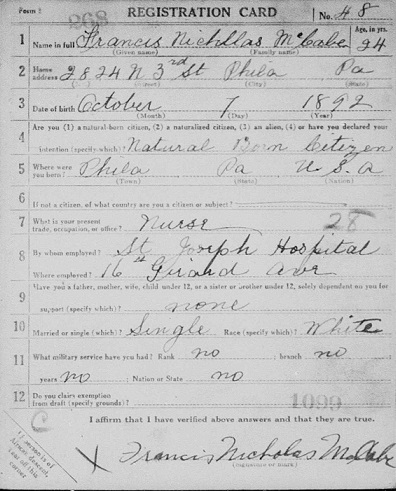 Form 1 268 REGISTRATION CARD No. 48
1 Name in full Francis Nichollas McCabe Age, in yrs. 24
(Given name) (Family name)
2 Home address 2824 N 3rd St Phila Pa
(No.) (Street) (City) (State)
3 Date of birth October 7 1892
(Month) (Day) (Year)
4 Are you (1) a natural-born citizen, (2) a naturalized citizen, (3) an alien, (4) or have you declared your
intention (specify which)? Natural Born Citizen
5 Where were you born? Phila Pa U.S.A
(Town) (State) (Nation)
6 If not a citizen, of what country are you a citizen or subject?
7 What is your present trade, occupation, or office? Nurse 28
8 By whom employed? St Joseph Hospital
Where employed? 16th Girard Ave
9 Have you a father, mother, wife, child under 12, or a sister or brother under 12, solely dependent on you for
support (specify which)? none
10 Married or single (which)? Single Race (specify which)? White
11 What military service have you had? Rank no ; branch no
years no ; Nation or State no
12 Do you claim exemption from draft (specify grounds)? 1099
I affirm that I have verified above answers and that they are true.
X Francis Nicholas McCabe
(Signature or mark)
If person is of African descent, tear off this corner